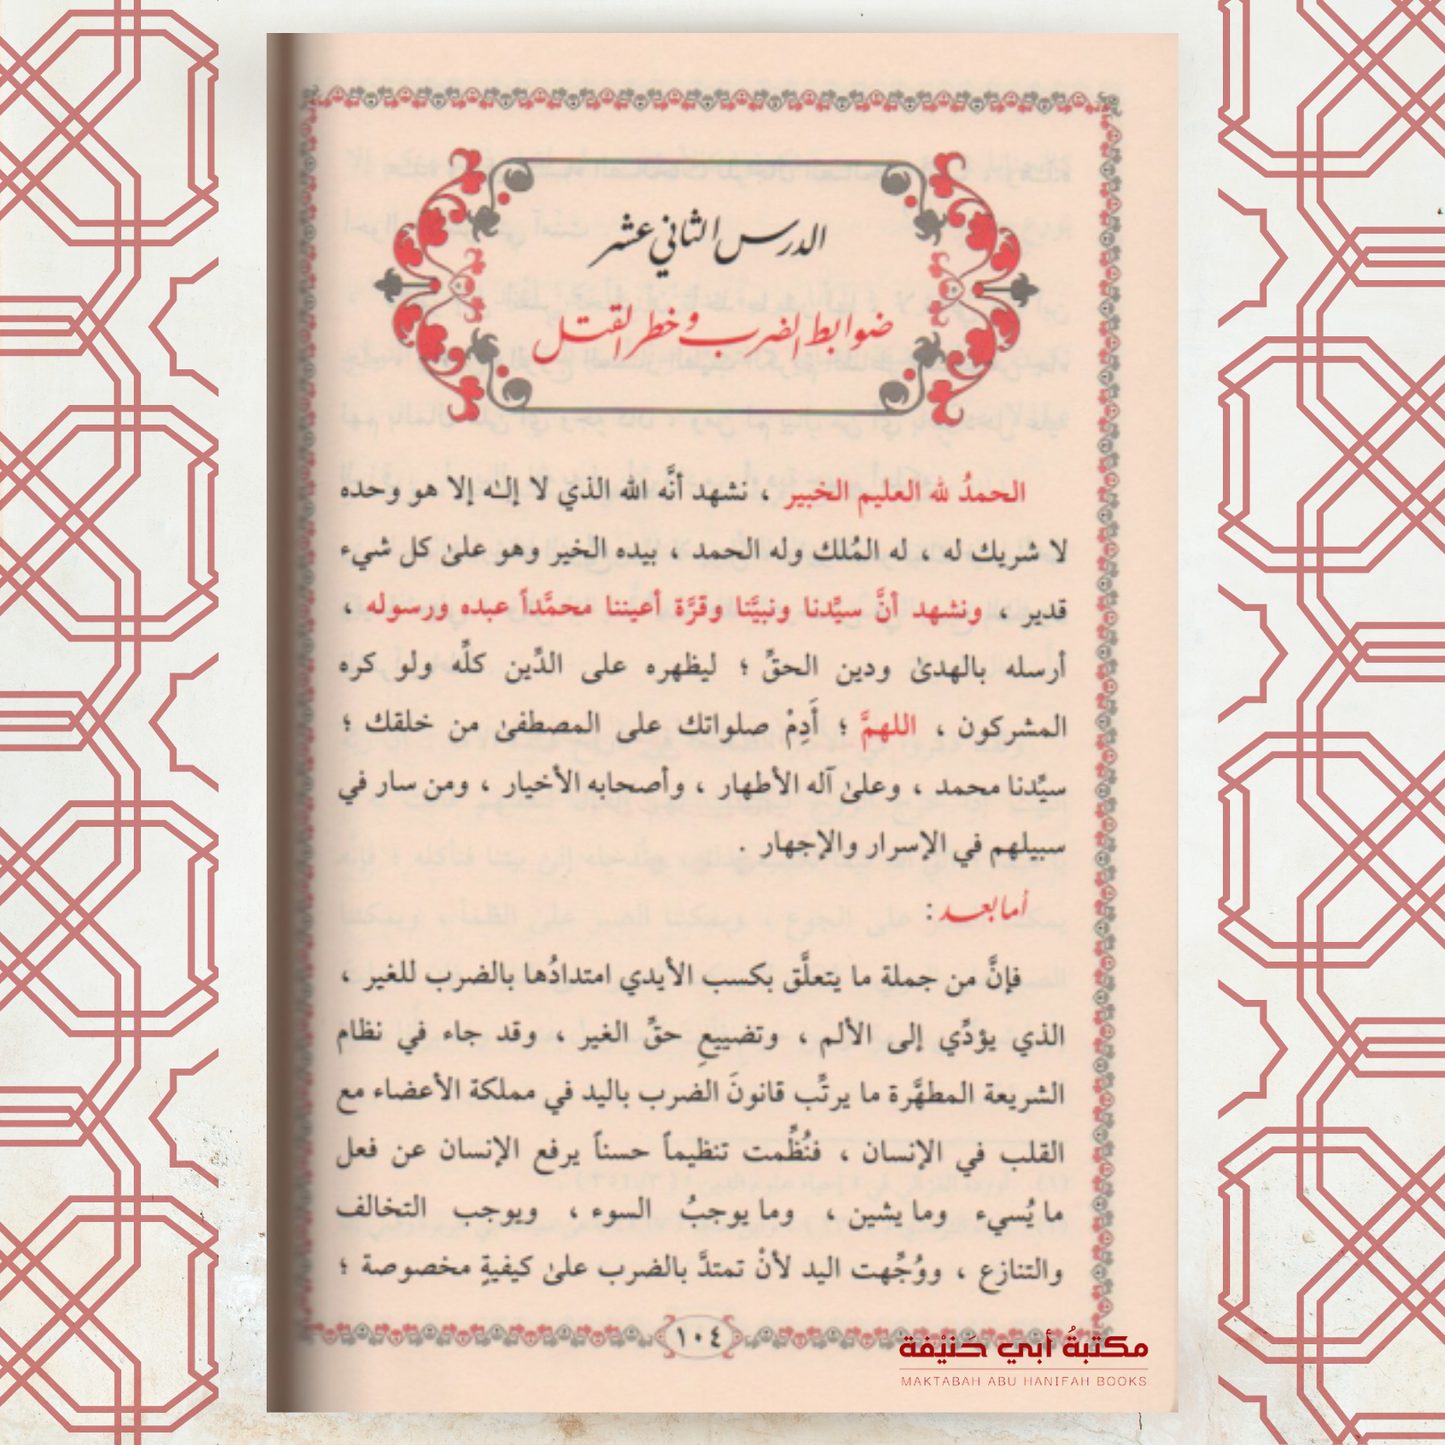 الدرس الثاني عشر
ضوابط الضرب وخطر القتل
الحمدُ لله العليم الخبير ، نشهد أنَّه الله الذي لا إلـٰه إلا هو وحده
لا شريك له ، له المُلك وله الحمد ، بيده الخير وهو علىٰ كل شيء
قدير ، ونشهد أنَّ سيِّدنا ونبيَّنا وقرَّة أعيننا محمَّداً عبده ورسوله ،
أرسله بالهدىٰ ودين الحقِّ ؛ ليظهره على الدِّين كلِّه ولو كره
المشركون ، اللهمَّ ؛ أَدِمْ صلواتك على المصطفىٰ من خلقك ؛
سيِّدنا محمد ، وعلىٰ آله الأطهار ، وأصحابه الأخيار ، ومن سار في
سبيلهم في الإسرار والإجهار .
أما بعد :
فإنَّ من جملة ما يتعلَّق بكسب الأيدي امتدادُها بالضرب للغير ،
الذي يؤدِّي إلى الألم ، وتضييعِ حقِّ الغير ، وقد جاء في نظام
الشريعة المطهَّرة ما يرتِّب قانونَ الضرب باليد في مملكة الأعضاء مع
القلب في الإنسان ، فنُظِّمت تنظيماً حسناً يرفع الإنسان عن فعل
ما يُسيء وما يشين ، وما يوجبُ السوء ، ويوجب التخالف
والتنازع ، ووُجِّهت اليد لأنْ تمتدَّ بالضرب علىٰ كيفيةٍ مخصوصة ؛
١٠٤
مكتبةُ أبي حَنيْفة
MAKTABAH ABU HANIFAH BOOKS